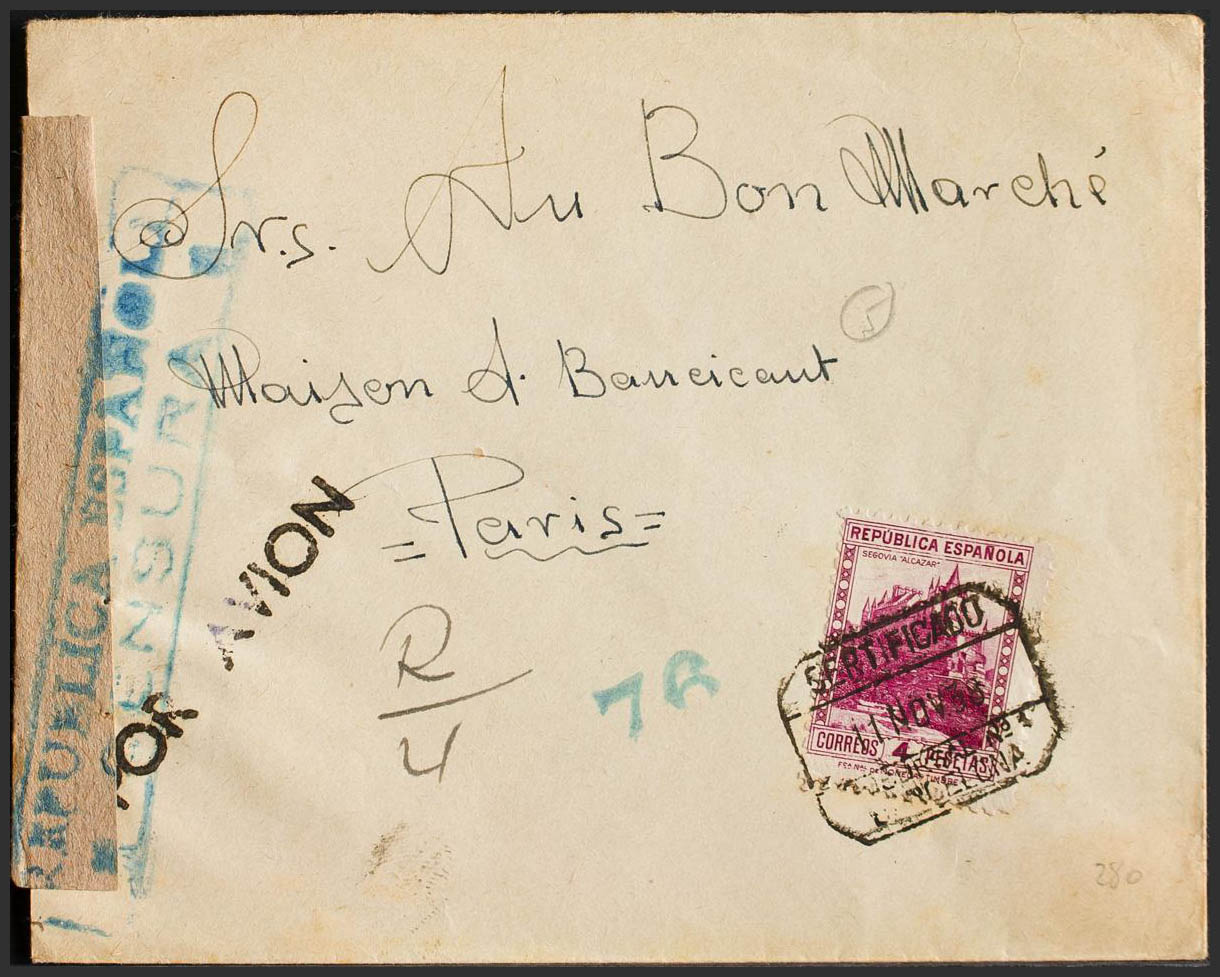 Srs. Au Bon Marché
Maison A. Barreicaut
=Paris=
POR AVION
REPUBLICA ESPAÑOLA
CENSURA
R
4
76
REPÚBLICA ESPAÑOLA
SEGOVIA "ALCAZAR"
CORREOS 4 PESETAS
CERTIFICADO
11 NOV 38
Nº 1
BARCELONA
280